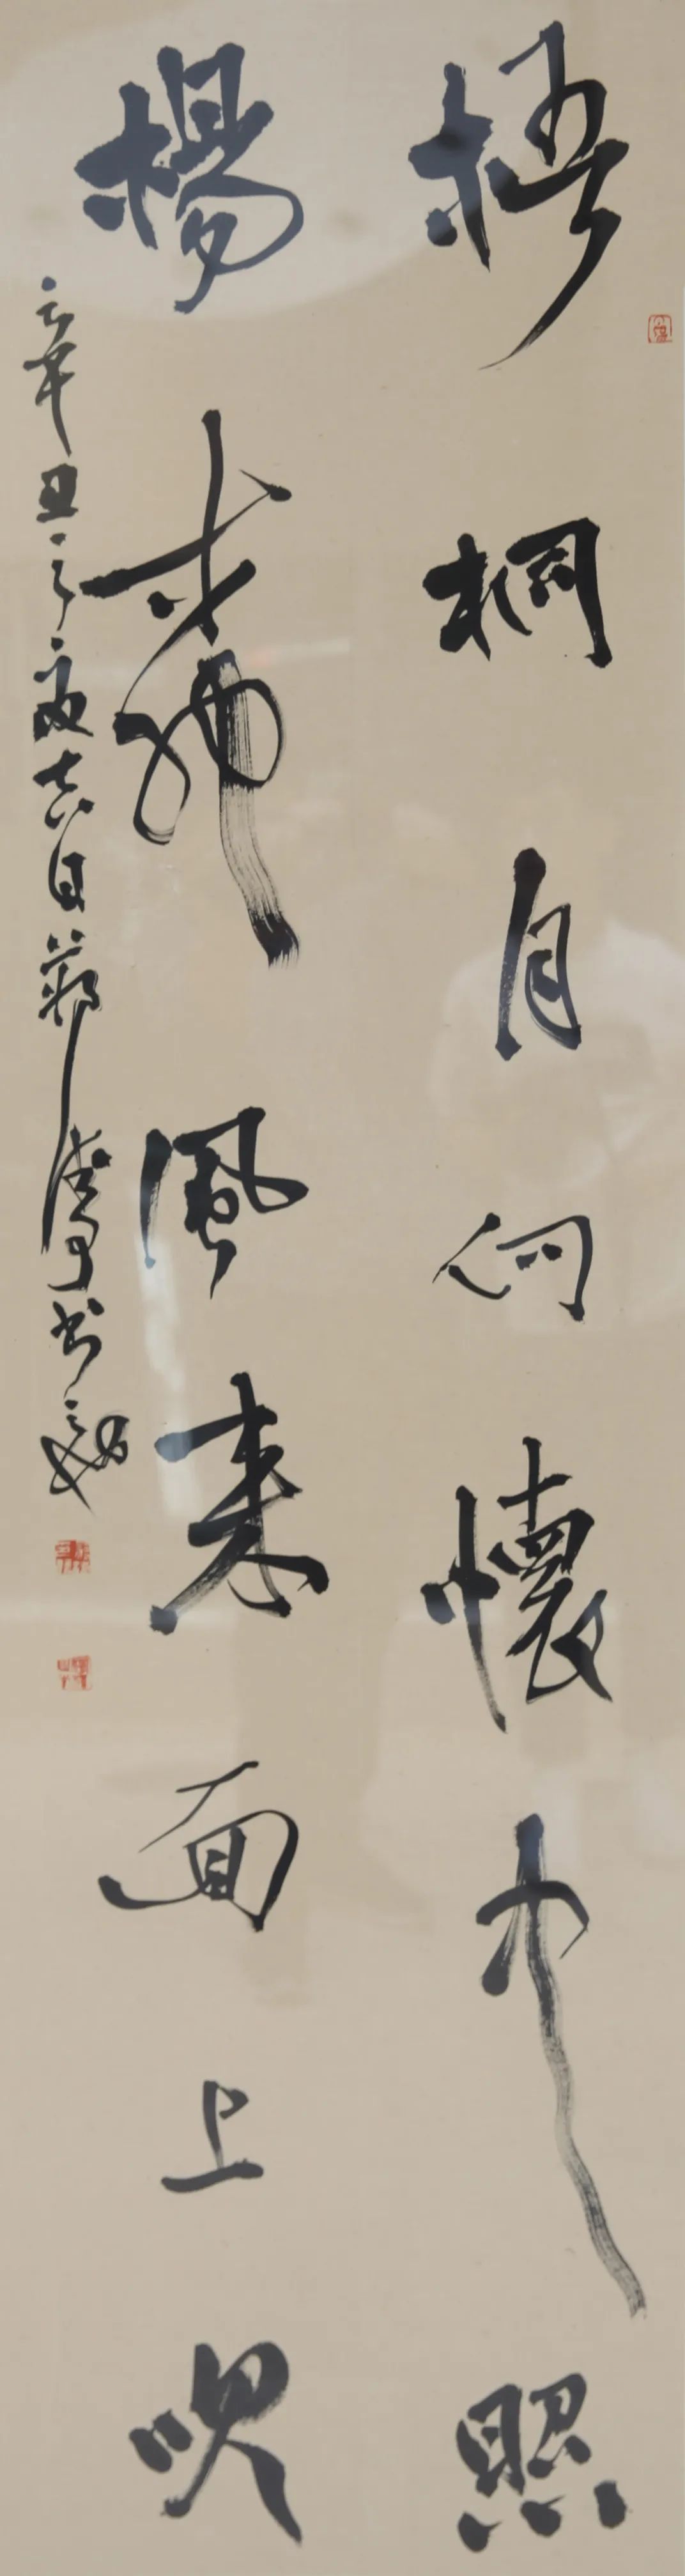 梧桐月向懷中照
楊柳風來面上吹
辛丑之夏吉日